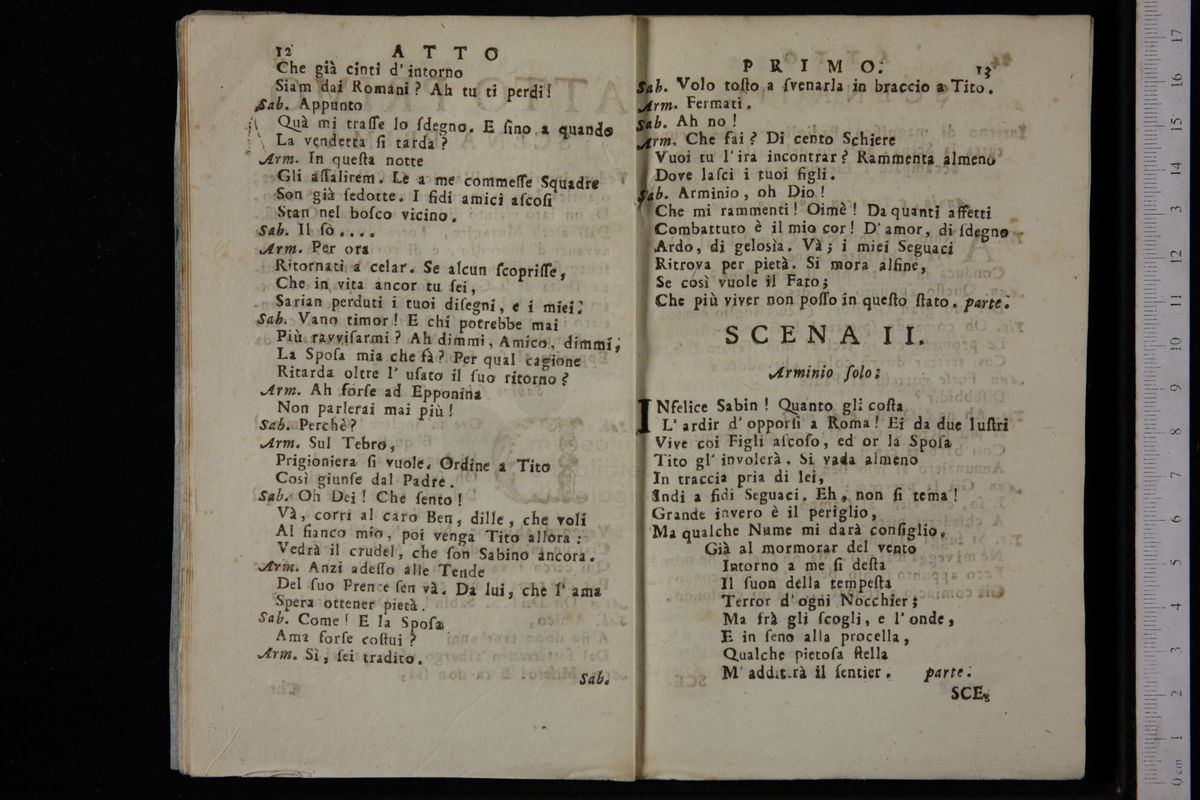 12 ATTO
Che già cinti d'intorno
Siam dai Romani? Ah tu ti perdi!
Sab. Appunto
Quà mi traſſe lo ſdegno. E ſino a quando
La vendetta ſi tarda?
Arm. In queſta notte
Gli aſſalirem. Le a me commeſſe Squadre
Son già ſedotte. I fidi amici aſcoſi
Stan nel boſco vicino.
Sab. Il ſò....
Arm. Per ora
Ritornati a celar. Se alcun ſcopriſſe,
Che in vita ancor tu ſei,
Sarian perduti i tuoi diſegni, e i miei.
Sab. Vano timor! E chi potrebbe mai
Più ravviſarmi? Ah dimmi, Amico, dimmi,
La Spoſa mia che fà? Per qual cagione
Ritarda oltre l' uſato il ſuo ritorno?
Arm. Ah forſe ad Epponina
Non parlerai mai più!
Sab. Perchè?
Arm. Sul Tebro,
Prigioniera ſi vuole. Ordine a Tito
Così giunſe dal Padre.
Sab. Oh Dei! Che ſento!
Và, corri al caro Ben, dille, che voli
Al fianco mio, poi venga Tito allora:
Vedrà il crudel, che ſon Sabino ancora.
Arm. Anzi adeſſo alle Tende
Del ſuo Prence ſen và. Da lui, che l' ama
Spera ottener pietà.
Sab. Come! E la Spoſa
Ama forſe coſtui?
Arm. Sì, ſei tradito.
Sab.
PRIMO. 13
Sab. Volo toſto a ſvenarla in braccio a Tito.
Arm. Fermati.
Sab. Ah no!
Arm. Che fai? Di cento Schiere
Vuoi tu l'ira incontrar? Rammenta almeno
Dove laſci i tuoi figli.
Sab. Arminio, oh Dio!
Che mi rammenti! Oimè! Da quanti affetti
Combattuto è il mio cor! D'amor, di ſdegno
Ardo, di geloſia. Và; i miei Seguaci
Ritrova per pietà. Si mora alfine,
Se così vuole il Fato;
Che più viver non poſſo in queſto ſtato. parte.
SCENA II.
Arminio ſolo:
INfelice Sabin! Quanto gli coſta
L' ardir d'opporſi a Roma! Ei da due luſtri
Vive coi Figli aſcoſo, ed or la Spoſa
Tito gl' involerà. Si vada almeno
In traccia pria di lei,
Indi a fidi Seguaci. Eh, non ſi tema!
Grande invero è il periglio,
Ma qualche Nume mi darà conſiglio.
Già al mormorar del vento
Intorno a me ſi deſta
Il ſuon della tempeſta
Terror d'ogni Nocchier;
Ma frà gli ſcogli, e l'onde,
E in ſeno alla procella,
Qualche pietoſa ſtella
M' additerà il ſentier. parte.
SCE-